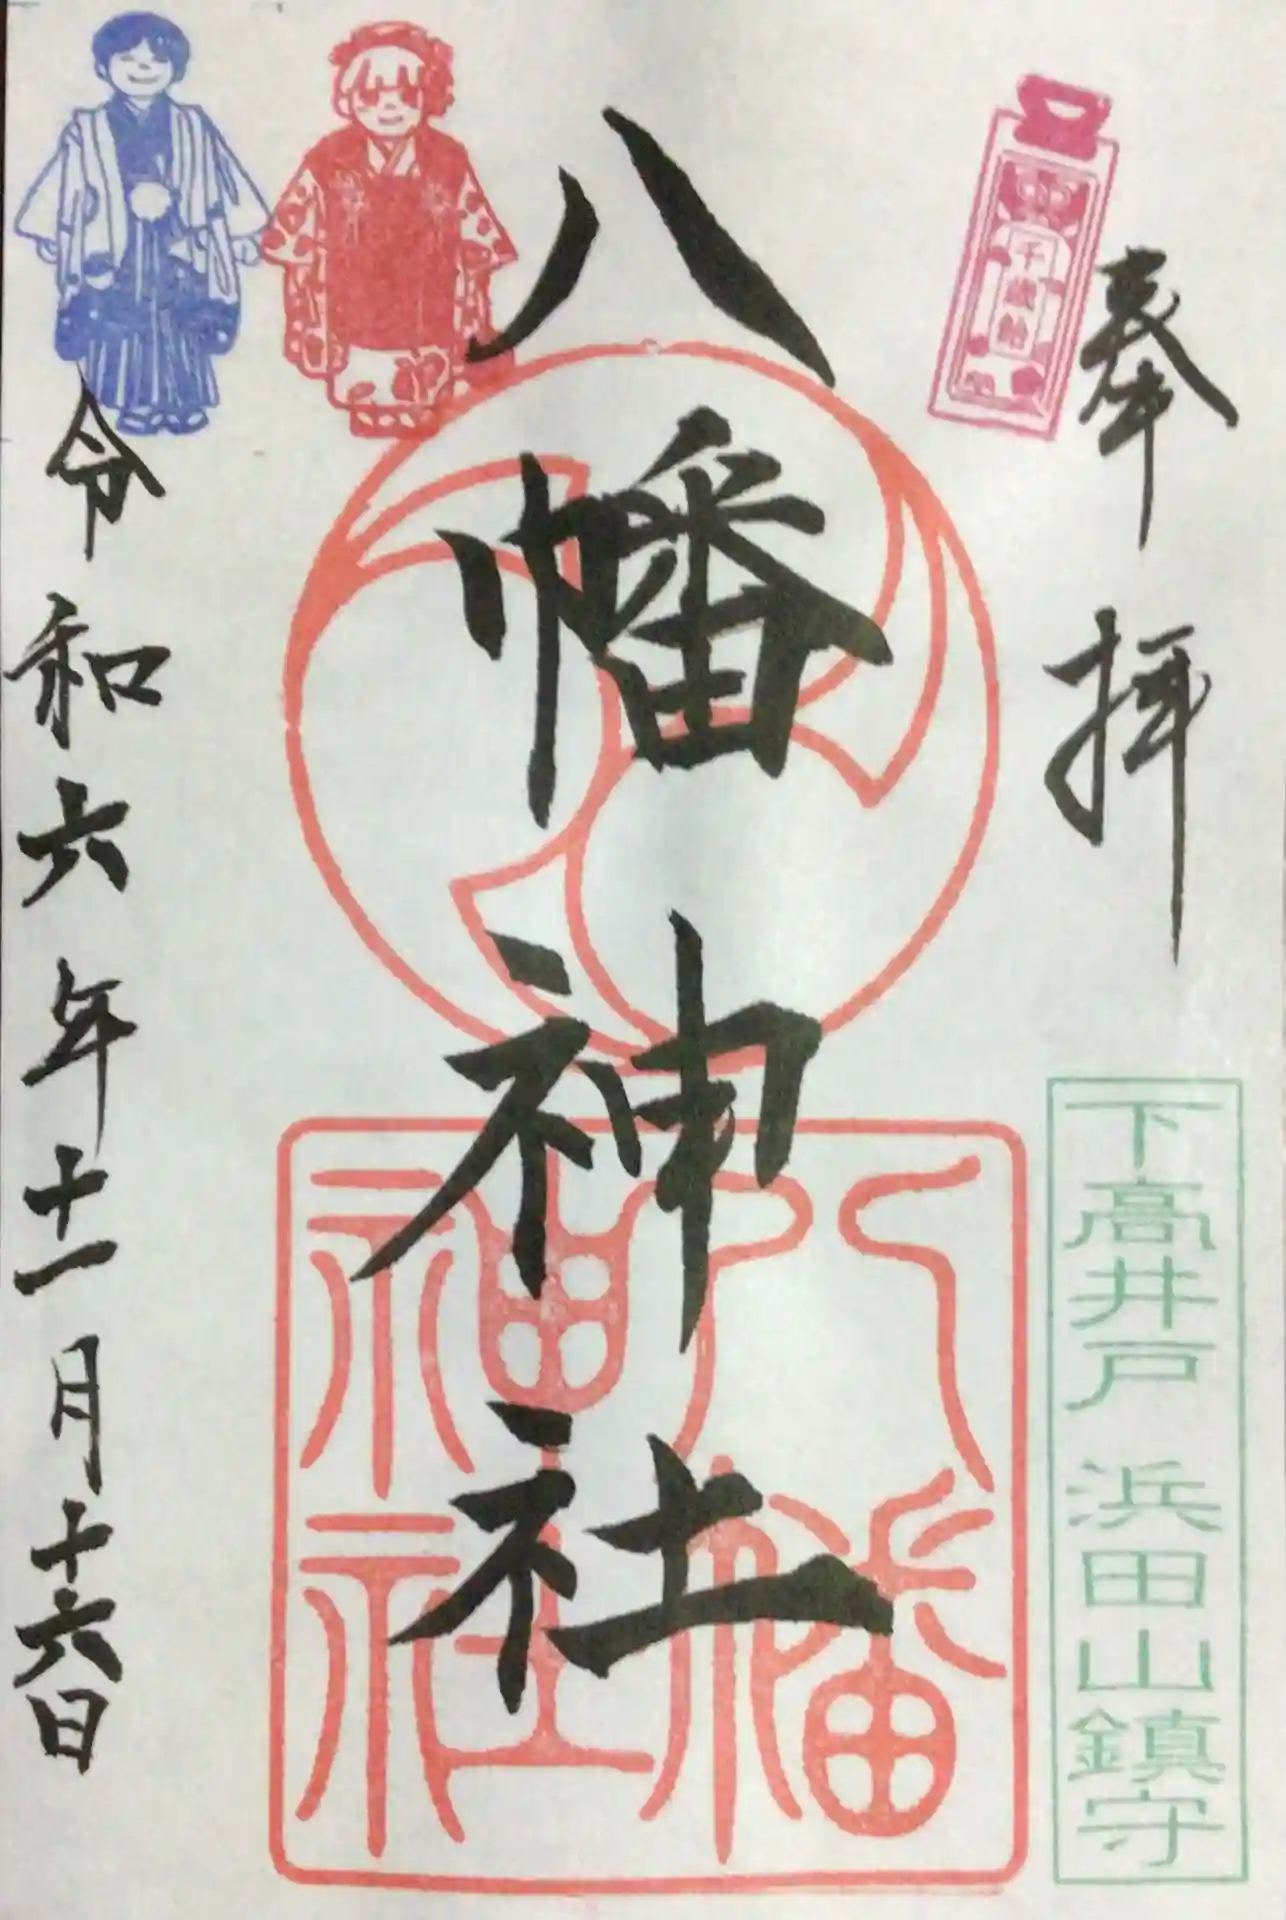 奉拝
千歳飴
下高井戸 浜田山鎮守
八幡神社
八幡
神社
令和六年十一月十六日